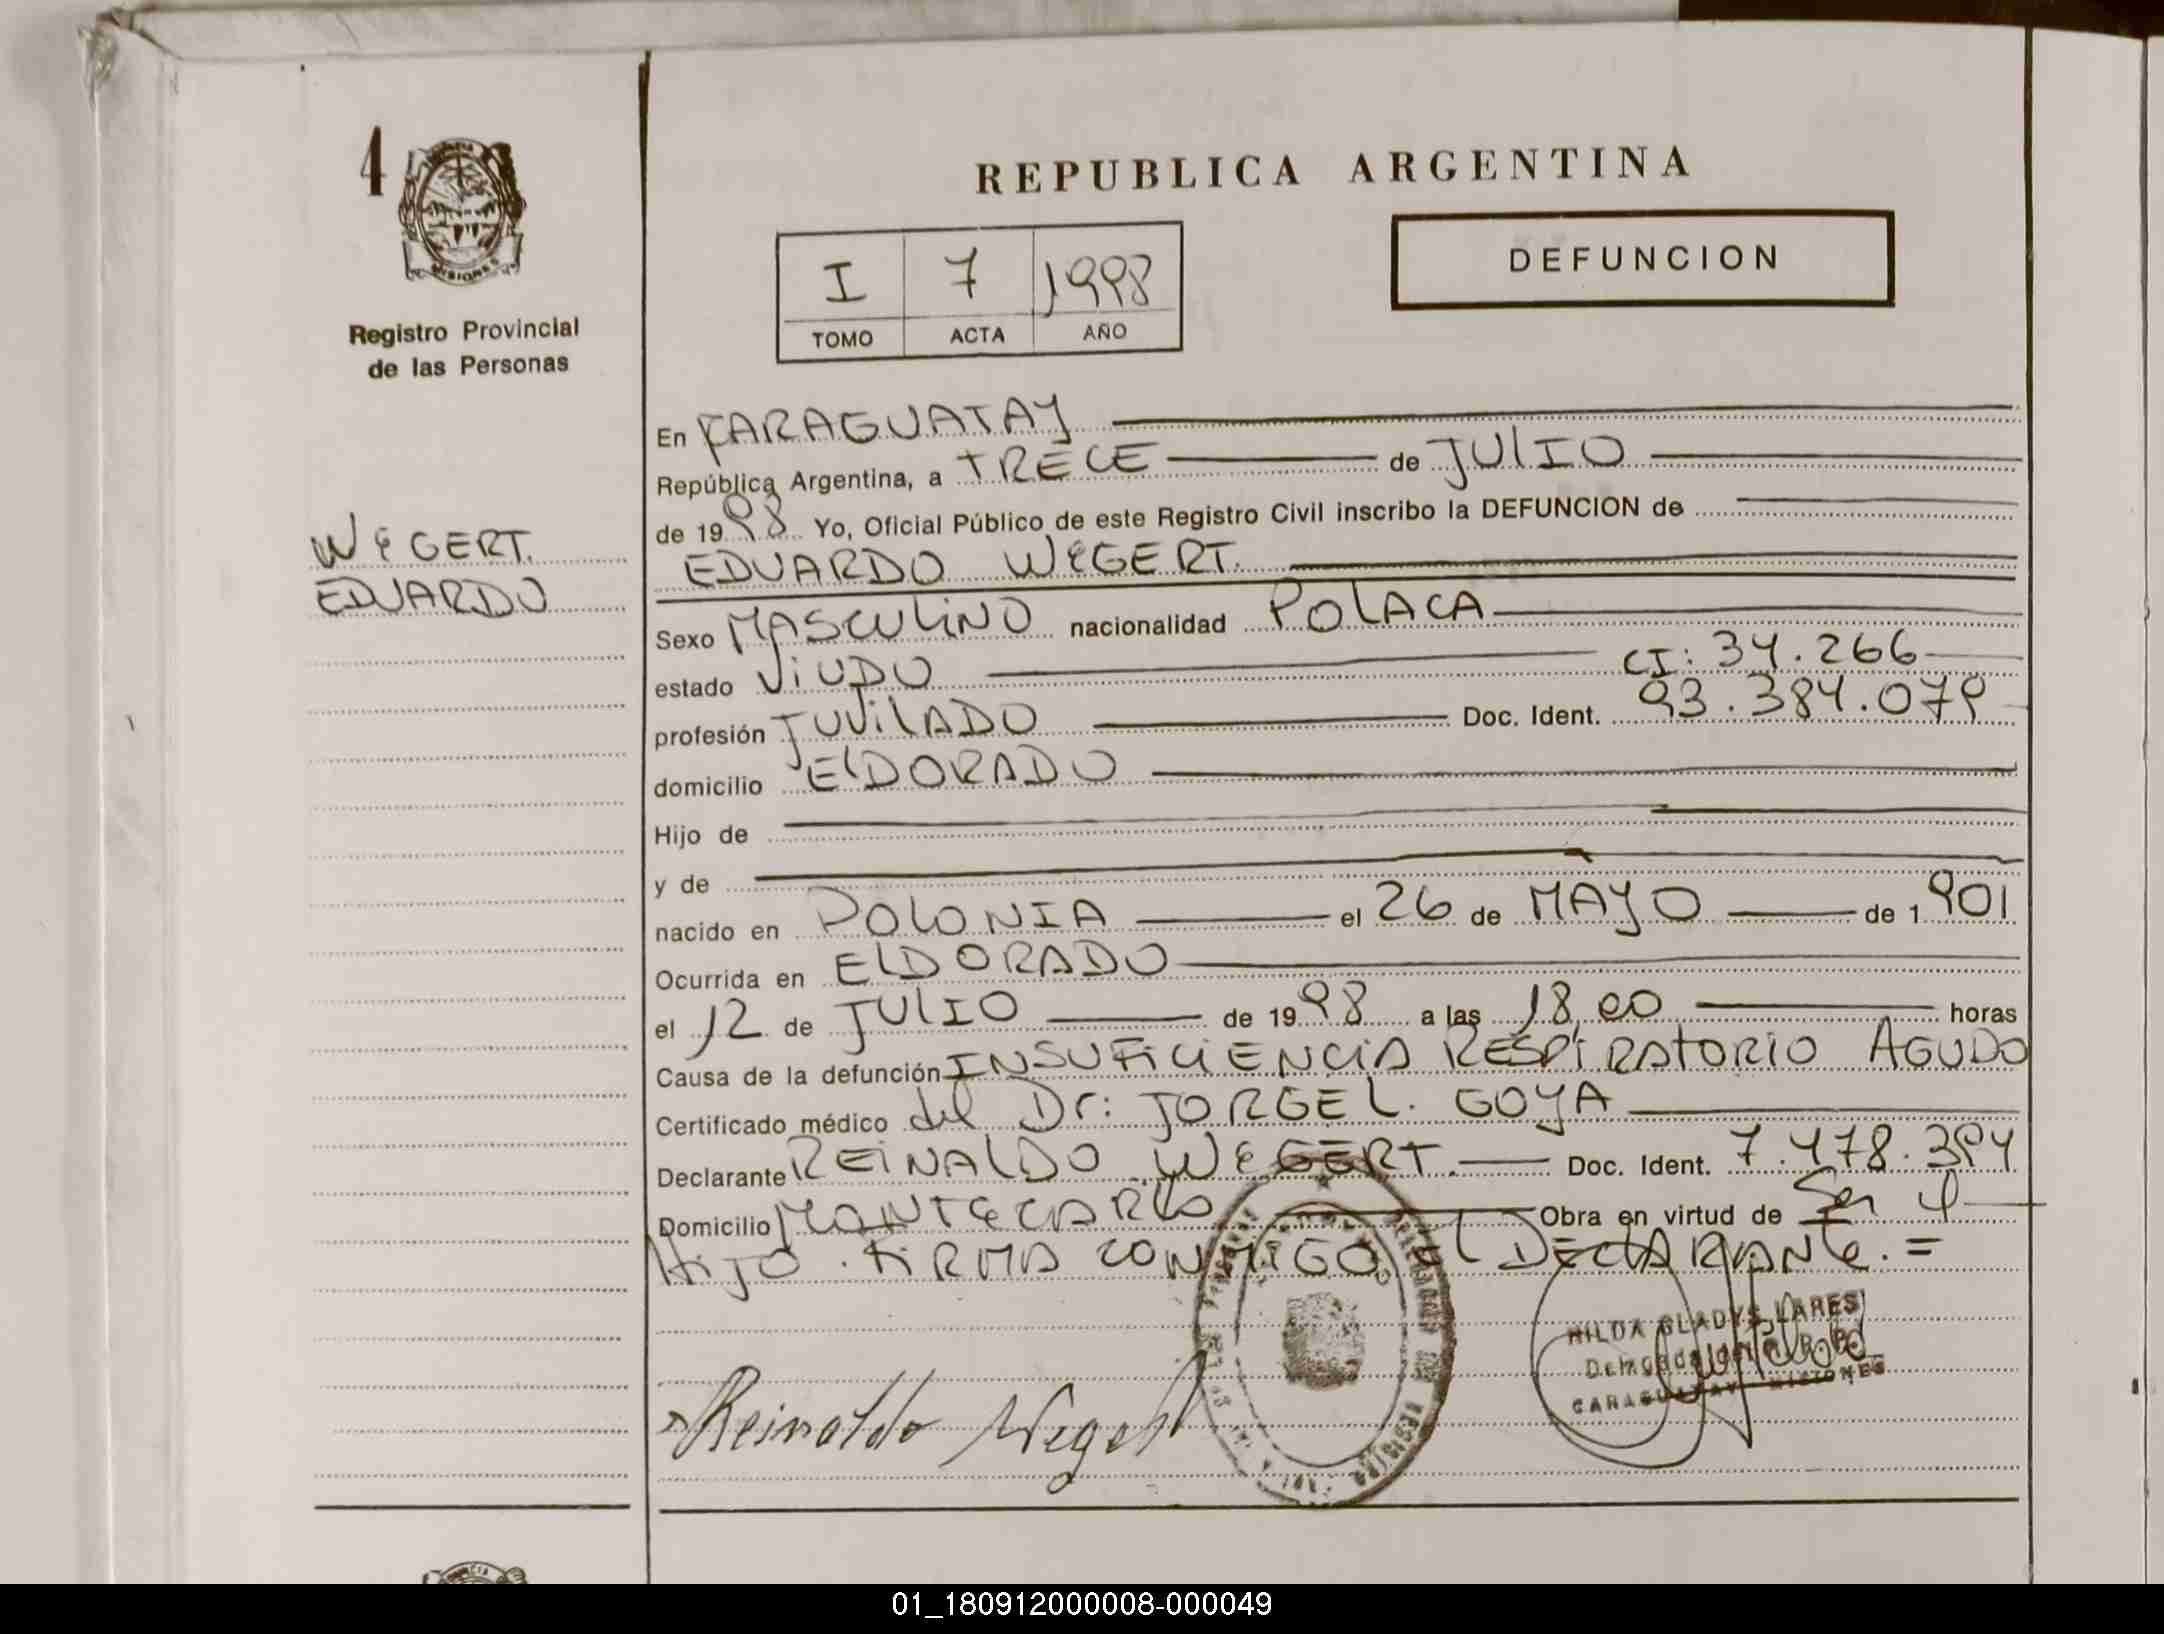 4
MISIONES
Registro Provincial
de las Personas
WEGERT.
EDUARDO
REPUBLICA ARGENTINA
I 7 1998
TOMO ACTA AÑO
DEFUNCION
En CARAGUATAY
República Argentina, a TRECE de JULIO
de 1998 Yo, Oficial Público de este Registro Civil inscribo la DEFUNCION de
EDUARDO WEGERT.
Sexo MASCULINO nacionalidad POLACA
estado VIUDO CI: 34.266
profesión JUVILADO Doc. Ident. 93.384.079
domicilio ELDORADO
Hijo de
y de
nacido en POLONIA el 26 de MAYO de 1901
Ocurrida en ELDORADO
el 12 de JULIO de 1998 a las 18,00 horas
Causa de la defunción INSUFICIENCIA RESPIRATORIO AGUDO
Certificado médico del Dr: JORGE L. GOYA
Declarante REINALDO WEGERT. Doc. Ident. 7.478.394
Domicilio MONTECARLO Obra en virtud de Ser el
HIJO. FIRMA CONMIGO el DECLARANTE.=
HILDA GLADYS LARES
Delegada
CARAGUATAY MISIONES
Reinaldo Wegert
01_180912000008-000049